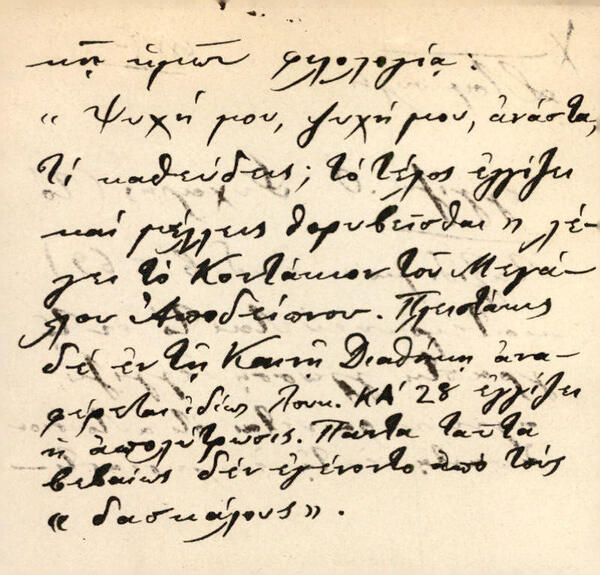 κῇ ἡμῶν φιλολογίᾳ:
« Ψυχή μου, ψυχή μου, ἀνάστα,
τί καθεύδεις; τό τέλος ἐγγίζει
καί μέλλεις θορυβεῖσθαι » λέ-
γει τό Κοντάκιον τοῦ Μεγά-
λου Ἀποδείπνου. Πλειστάκις
δέ ἐν τῇ Καινῇ Διαθήκῃ ἀνα-
φέρεται ἰδίως Λουκ. ΚΑ' 28 ἐγγίζει
ἡ ἀπολύτρωσις. Πάντα ταῦτα
βεβαίως δέν ἐγένοντο ἀπό τούς
« δασκάλους ».